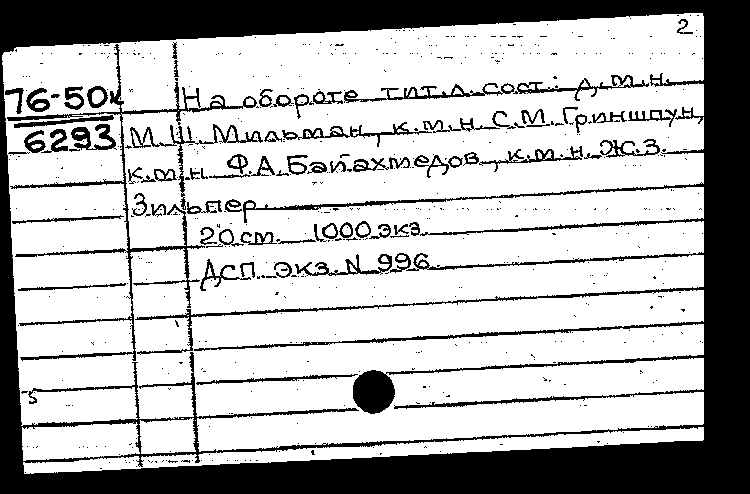 2
76-50к
6293
На обороте тит.л. сост.: д.м.н.
М.Ш. Мильман, к.м.н. С.М. Гриншпун,
к.м.н. Ф.А. Байахмедов, к.м.н. Ж.З.
Зильпер.
20 см. 1000 экз.
ДСП. Экз. N 996.
5